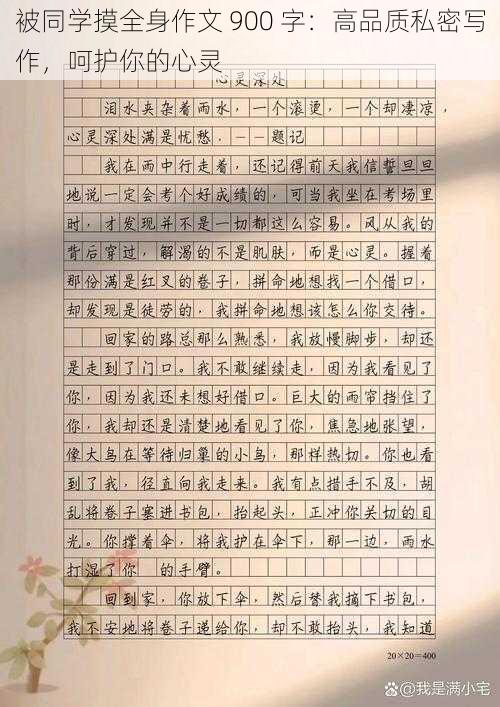 被同学摸全身作文 900 字：高品质私密写
作，呵护你的心灵
心灵深处
泪水夹杂着雨水，一个滚烫，一个却凄凉，
心灵深处满是忧愁．——题记
我在雨中行走着，还记得前天我信誓旦旦
地说一定会考个好成绩的，可当我坐在考场里
时，才发现并不是一切都这么容易。风从我的
背后穿过，解渴的不是肌肤，而是心灵。握着
那份满是红叉的卷子，拼命地想找一个借口，
却发现是徒劳的，我拼命地想该怎么你交待。
回家的路总那么熟悉，我放慢脚步，却还
是走到了门口。我不敢继续走，因为我看见了
你，因为我还未想好借口。巨大的雨帘挡住了
你，我却还是清楚地看见了你，焦急地张望，
像大鸟在等待归巢的小鸟，那样热切。你也看
到了我，径直向我走来。我有点措手不及，胡
乱将卷子塞进书包，抬起头，正冲你关切的目
光。你撑着伞，将我护在伞下，那一边，雨水
打湿了你 的手臂。
回到家，你放下伞，然后替我摘下书包，
我不安地将卷子递给你，却不敢抬头，我知道
20×20=400
@我是满小宅